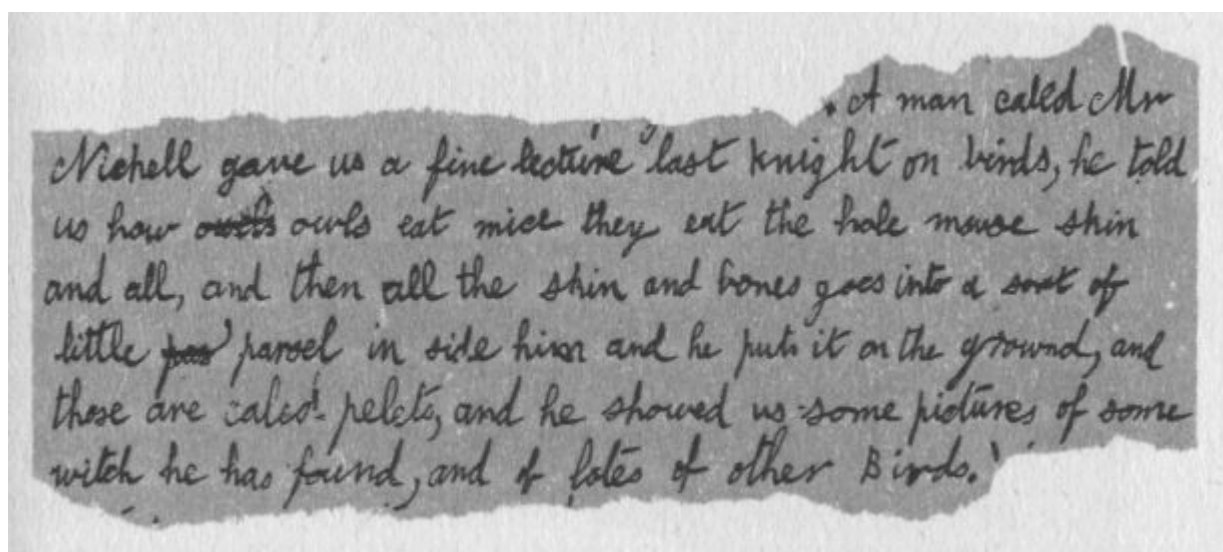 A man called Mr
Nichell gave us a fine lecture last knight on birds, he told
us how owls owls eat mice they eat the hole mouse skin
and all, and then all the skin and bones goes into a sort of
little par parsel in side him and he puts it on the ground, and
those are caled pelets, and he showed us some pictures of some
witch he has found, and of lotes of other Birds.